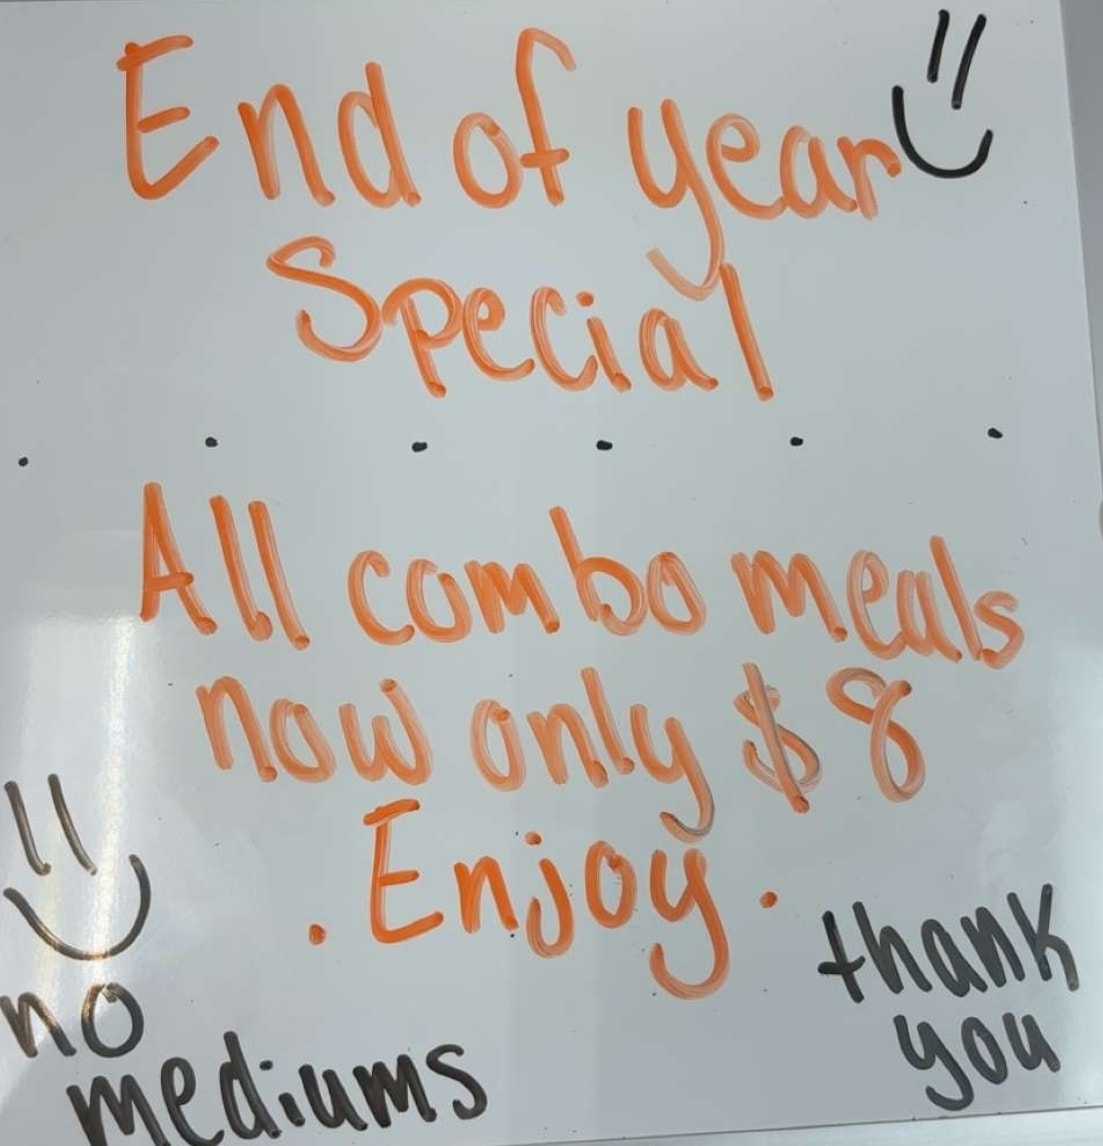 End of year
Special
All combo meals
now only $8
. Enjoy .
no
mediums
thank
you